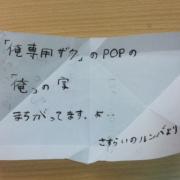 「俺専用ザク」のPOPの
「俺」の字
まちがってます。よ…
さすらいのルンバより